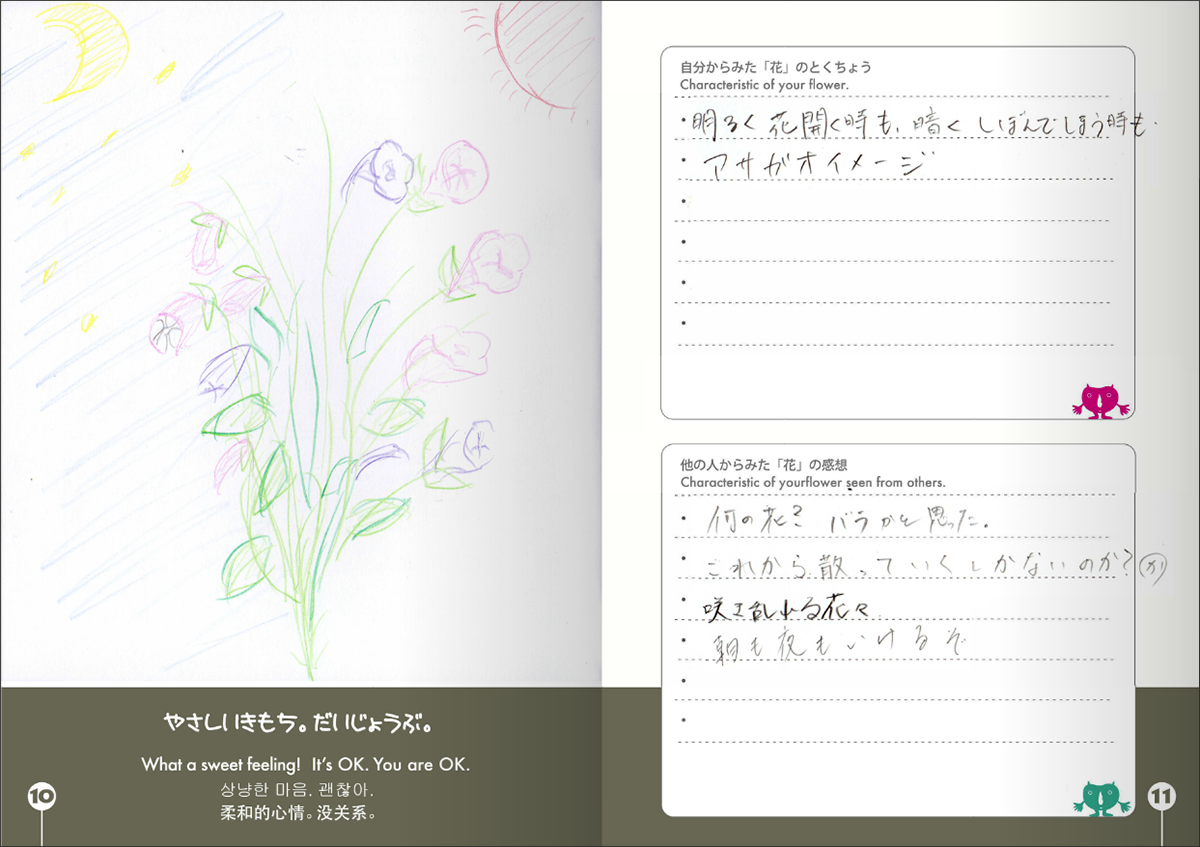 やさしいきもち。だいじょうぶ。
What a sweet feeling!  It's OK. You are OK.
상냥한 마음. 괜찮아.
柔和的心情。没关系。
10
自分からみた「花」のとくちょう
Characteristic of your flower.
・明るく花開く時も、暗くしぼんでしまう時も.
・アサガオイメージ
他の人からみた「花」の感想
Characteristic of yourflower seen from others.
・何の花? バラかと思った。
・これから散っていくしかないのか?(か)
・咲き乱れる花々
・朝も夜もいけるぞ
11